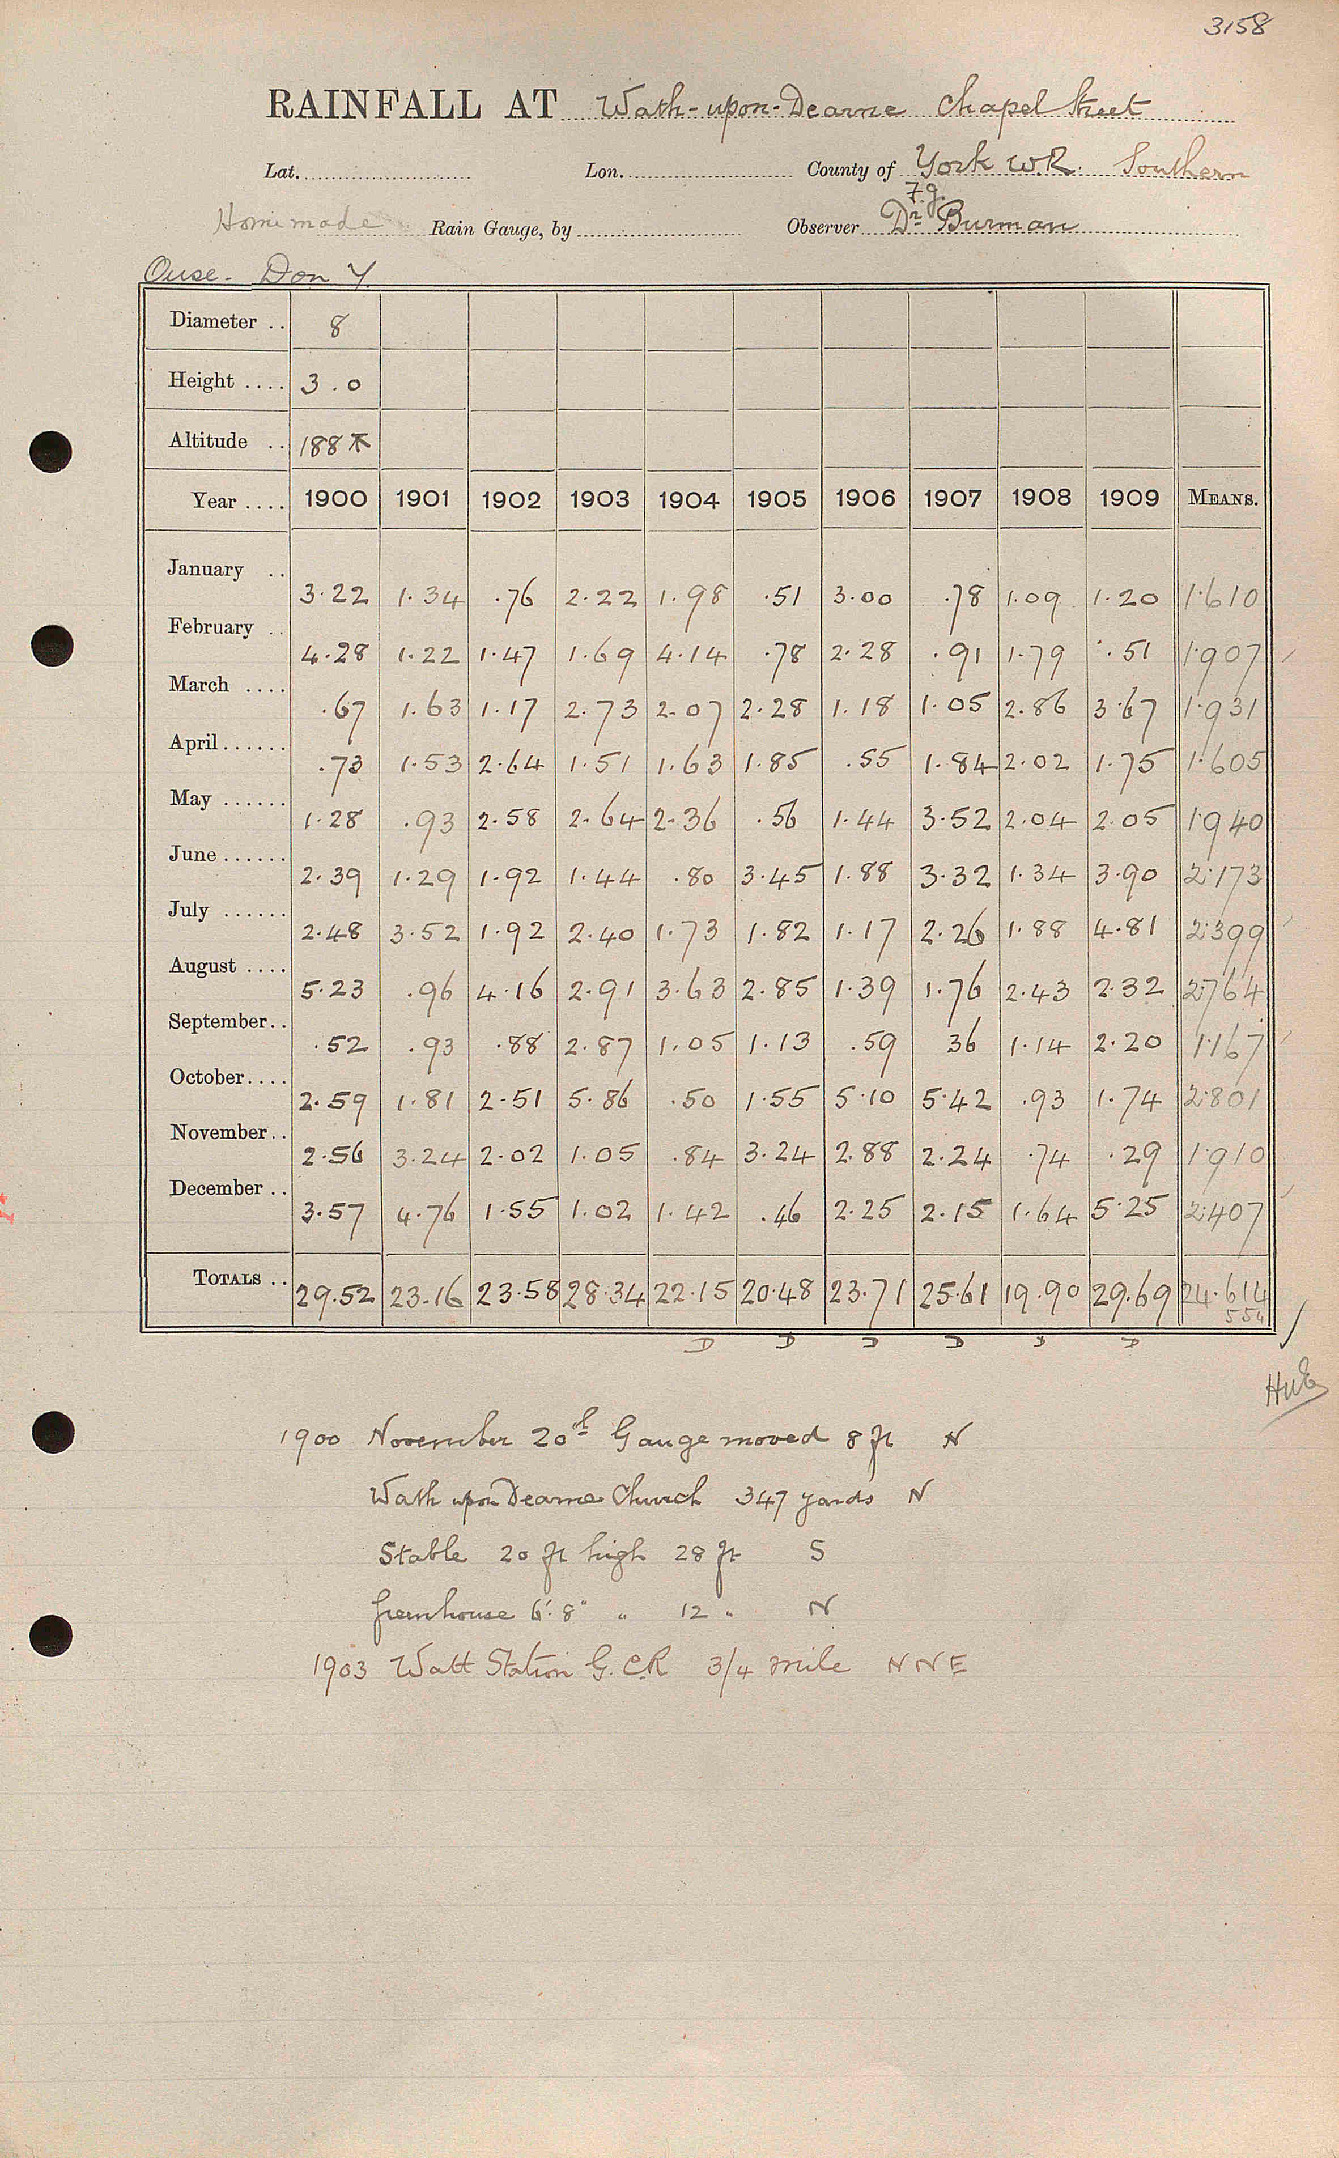 3158
RAINFALL AT Wath-upon-Dearne Chapel Street
Lat. Lon. County of York W.R. Southern
F.G.
Homemade Rain Gauge, by Observer Dr. Burman
Ouse - Don Y
Diameter .. 8
Height .... 3.0
Altitude .. 188
Year .... 1900 1901 1902 1903 1904 1905 1906 1907 1908 1909 MEANS.
January .. 3.22 1.34 .76 2.22 1.98 .51 3.00 .78 1.09 1.20 1.610
February .. 4.28 1.22 1.47 1.69 4.14 .78 2.28 .91 1.79 .51 1.907
March .... .67 1.63 1.17 2.73 2.07 2.28 1.18 1.05 2.86 3.67 1.931
April...... .73 1.53 2.64 1.51 1.63 1.85 .55 1.84 2.02 1.75 1.605
May ...... 1.28 .93 2.58 2.64 2.36 .56 1.44 3.52 2.04 2.05 1.940
June ...... 2.39 1.29 1.92 1.44 .80 3.45 1.88 3.32 1.34 3.90 2.173
July ...... 2.48 3.52 1.92 2.40 1.73 1.82 1.17 2.26 1.88 4.81 2.399
August .... 5.23 .96 4.16 2.91 3.63 2.85 1.39 1.76 2.43 2.32 2.764
September.. .52 .93 .88 2.87 1.05 1.13 .59 36 1.14 2.20 1.167
October.... 2.59 1.81 2.51 5.86 .50 1.55 5.10 5.42 .93 1.74 2.801
November.. 2.56 3.24 2.02 1.05 .84 3.24 2.88 2.24 .74 .29 1.910
December .. 3.57 4.76 1.55 1.02 1.42 .46 2.25 2.15 1.64 5.25 2.407
TOTALS .. 29.52 23.16 23.58 28.34 22.15 20.48 23.71 25.61 19.90 29.69 24.614
554
D D D D D D
1900 November 20th Gauge moved 8 ft N
Wath upon Dearne Church 347 yards N
Stable 20 ft high 28 ft S
Greenhouse 6'.8" " 12 " N
1903 Watt Station G.C.R 3/4 mile NNE